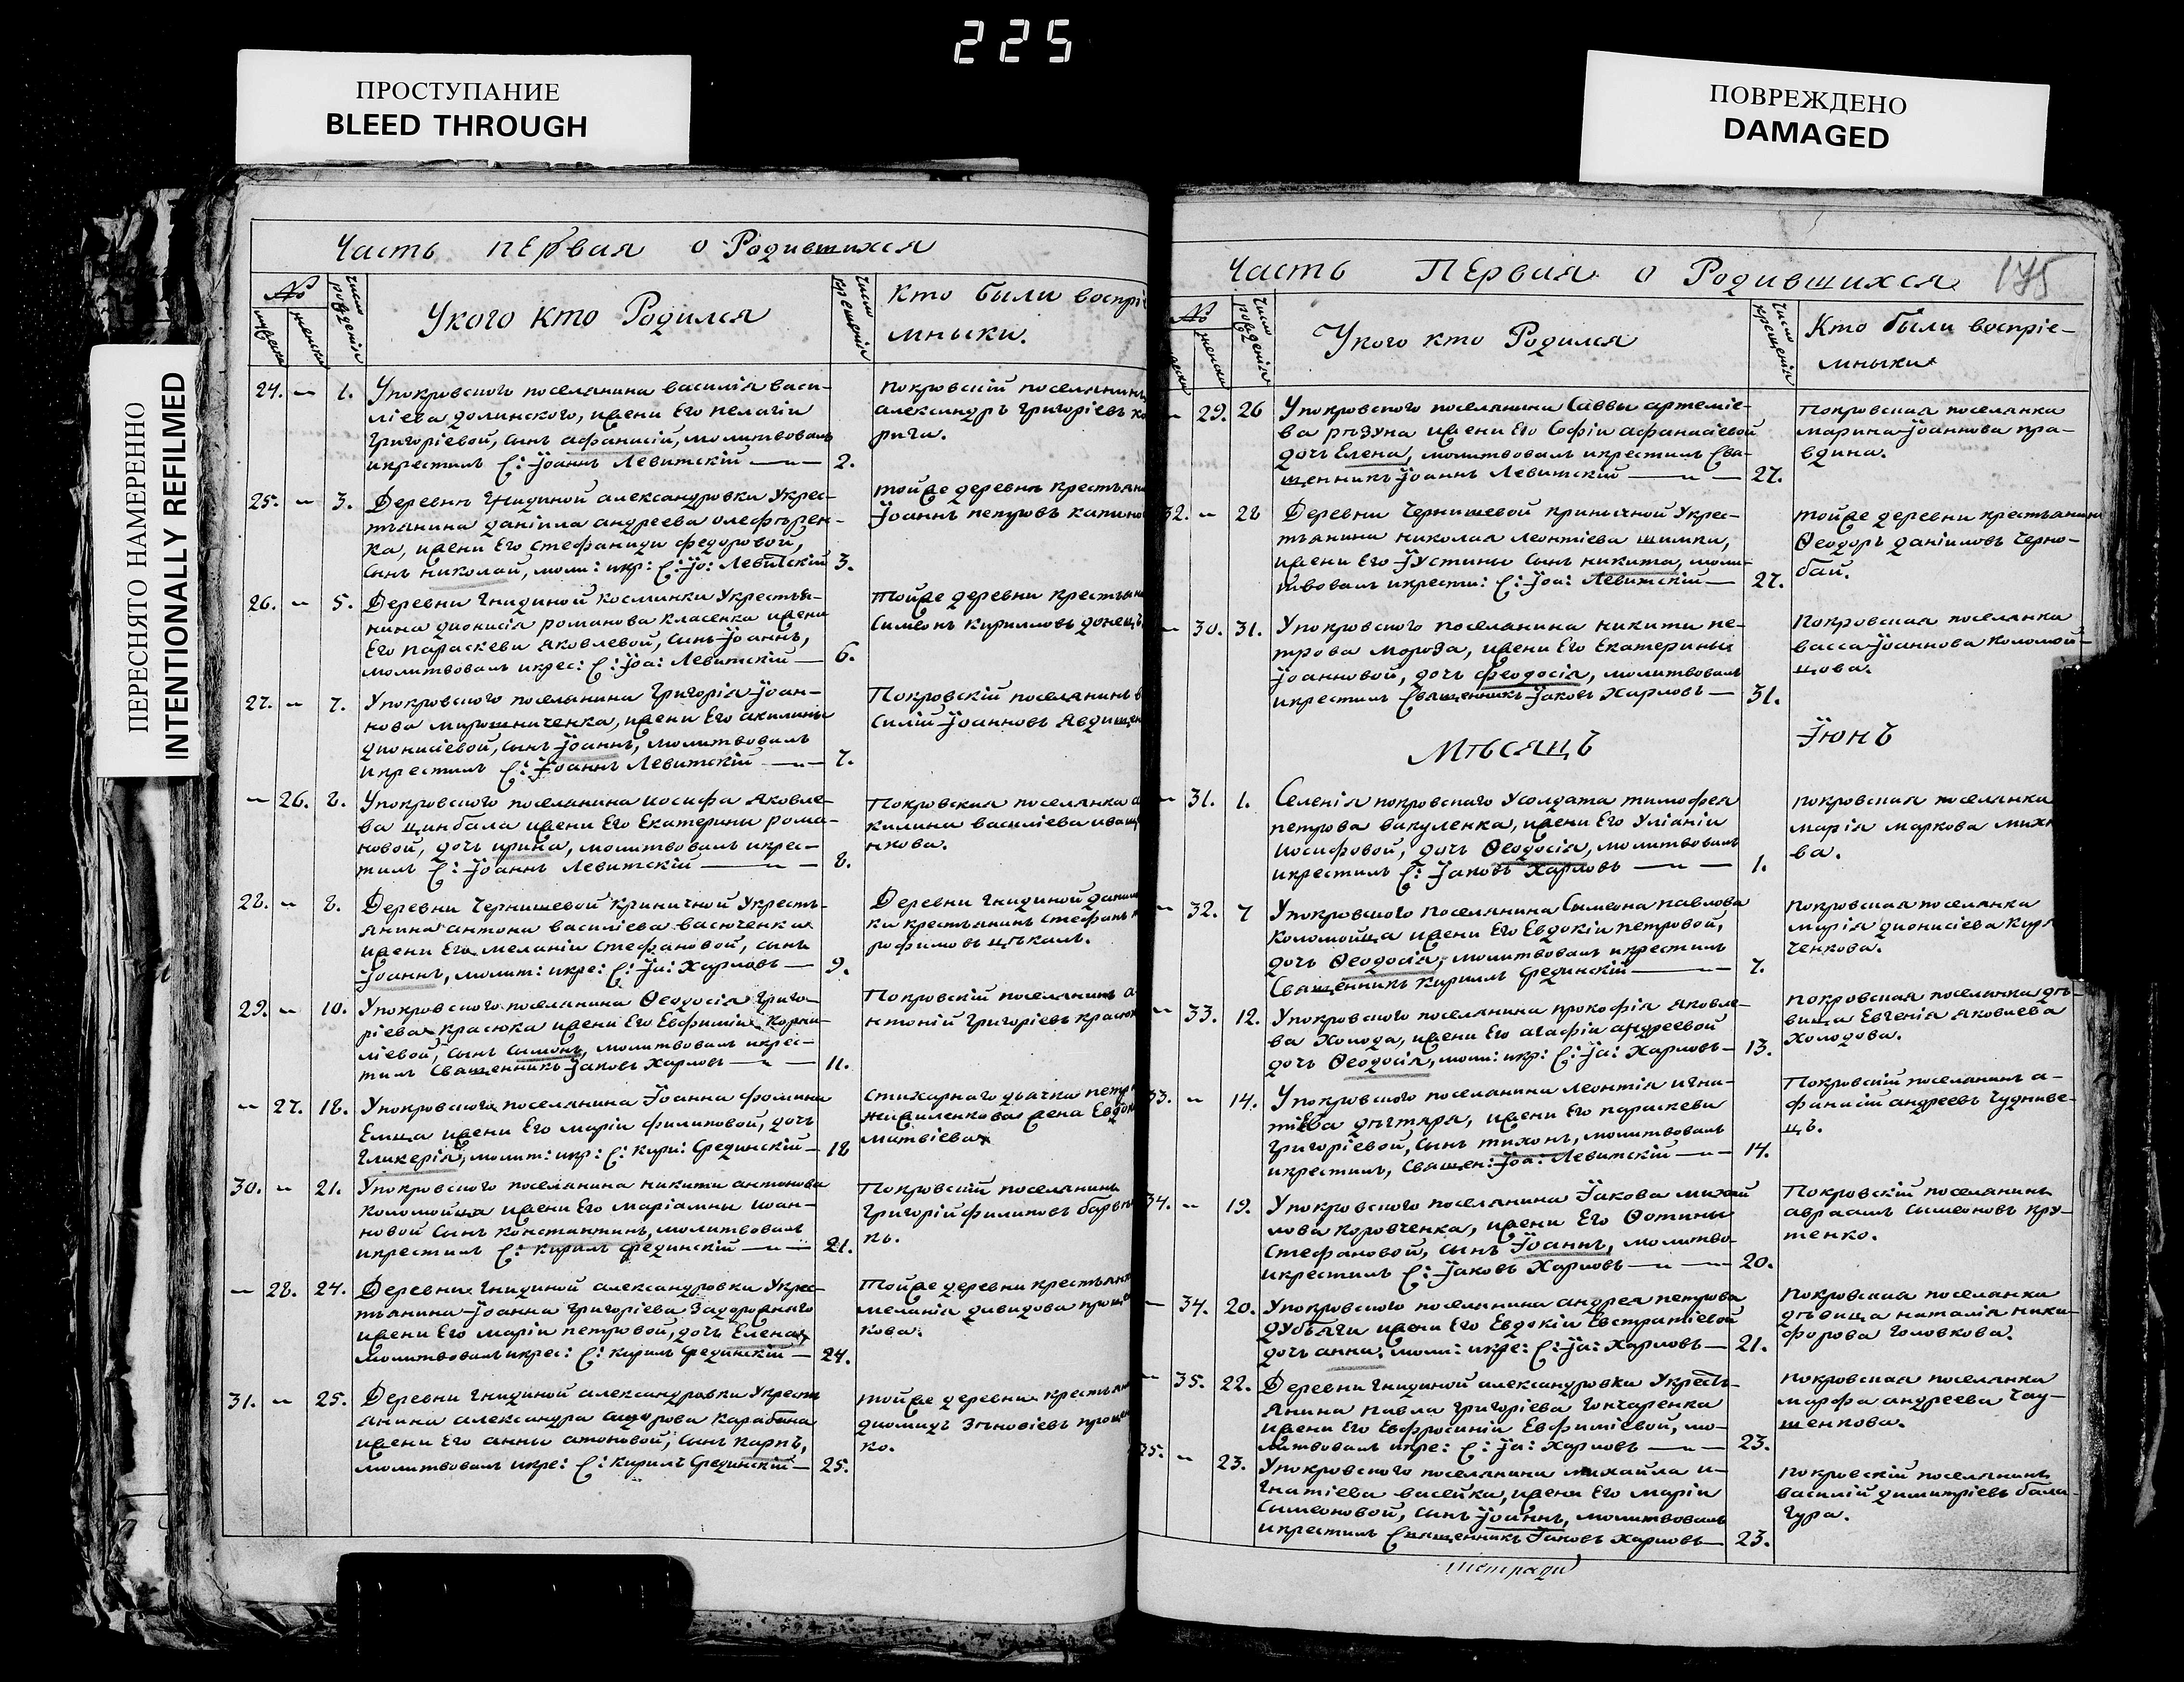 225
ПРОСТУПАНИЕ
BLEED THROUGH
ПОВРЕЖДЕНО
DAMAGED
ПЕРЕСНЯТО НАМЕРЕННО
INTENTIONALLY REFILMED
Часть первая о Родившихся
№
Число рождения
У кого кто Родился
Число крещенія
Кто были воспрі
мники.
24. — 1. У покровского поселянина василія васи-
ліева долинского, и жени Его пелагіи
григоріевой, сынъ афанасій, молитвовалъ
и крестилъ С: Іоаннъ Левитскій — 2.
покровскій поселянинъ
александръ григоріевъ
25. — 3. Деревни гнидиной александровки У крес-
тьянина даніила андреева
ка, и жени Его стефаниди федоровой,
сынъ николай, мол: и кр: С: Іо: Левитскій 3.
тойже деревни
Іоаннъ петровъ
26. — 5. Деревни гнидиной косминки У крестья-
нина діонисія романова класенка и жени
Его параскеви Яковлевой, сынъ Іоаннъ,
молитвовалъ и крес: С: Іоа: Левитскій — 6.
тойже деревни
Симеонъ кирилловъ донецъ
27. — 7. У покровского поселянина григорія Іоан-
нова мирошниченка, и жени Его акилины
дионисіевой, сынъ Іоаннъ, молитвовалъ
и крестилъ С: Іоаннъ Левитскій — 7.
Покровскій поселянинъ
силій Іоанновъ
— 26. 8. У покровского поселянина иосифа Яковле-
ва цинбала и жени Его Екатерины рома-
новой, дочъ ирина, молитвовалъ и крес-
тилъ С: Іоаннъ Левитскій — 8.
Покровская поселянка а
килина василіева
нкова.
28. — 8. Деревни Чернишевой криничной У кресть-
янина антона василіева васюченка
и жени Его меланіи стефановой, сынъ
Іоаннъ, молит: и кре: С: Іа: Харловъ — 9.
Деревни гнидиной
ки крестьянинъ стефанъ
рофимовъ
29. — 10. У покровского поселянина Ѳеодосія григо-
ріева красюка и жени Его Евфиміи корни-
ліевой, сынъ симонъ, молитвовалъ и крес-
тилъ Священникъ Іаковъ Харловъ — 11.
Покровскій поселянинъ а
нтоній григоріевъ
— 27. 18. У покровского поселянина Іоанна фомина
Емца и жени Его маріи филиповой, дочъ
гликерія, молит: и кр: С: Кири: Срединскій — 18
Стихарного дьячка
жена
матвіева
30. — 21. У покровского поселянина никити антонова
коломойца и жени Его маріамны иоан-
новой сынъ константинъ, молитвовалъ
и крестилъ С: кирилъ срединскій — 21.
Покровскій поселянинъ
григорій филиповъ
— 28. 24. Деревни гнидиной александровки У крес-
тьянина Іоанна григоріева задорожнего
и жени Его маріи петровой, дочъ Елена
молитвовалъ и крес: С: кирилъ Срединскій — 24.
тойже деревни
меланія давидова
кова.
31. — 25. Деревни гнидиной александровки У кресть
янина александра сидорова карабана
и жени Его анны антоновой, сынъ карпъ,
молитвовалъ и кре: С: кирилъ Срединскій — 25.
тойже деревни
диомидъ зѣновіевъ
ко.
Часть Первая о Родившихся 175
№
Число рожденія
У кого кто Родился
Число крещенія
Кто были воспріе-
мники
— 29. 26 У покровского поселянина Саввы артеміе-
ва рѣзуна и жени Его Софіи афанасіевой
дочъ Елена, молитвовалъ и крестилъ Свя-
щенникъ Іоаннъ Левитскій — 27.
Покровская поселянка
марина Іоаннова пра-
вдина.
32. — 28 Деревни Чернишевой криничной У крес-
тьянина николая леонтіева шимки,
и жени Его Іустины сынъ никита, моли-
твовалъ и крести: С: Іоа: Левитскій — 27.
тойже деревни крестьянинъ
Ѳеодоръ даніиловъ Черно-
бай.
— 30. 31. У покровского поселянина никити пе-
трова мороза, и жени Его Екатерины
Іоанновой, дочъ феодосія, молитвовалъ
и крестилъ Священникъ Іаковъ Харловъ — 31.
Покровская поселянка
васса Іоаннова коломой-
цова.
Мѣсяцъ
Іюнь
— 31. 1. Селенія покровского У солдата тимофея
петрова вакуленка, и жени Его Уліаніи
иосифовой, дочъ Ѳеодосія, молитвовалъ
и крестилъ С: Іаковъ Харловъ — 1.
покровская поселянка
марія маркова
ва.
— 32. 7 У покровского поселянина Симеона павлова
коломойца и жени Его Евдокіи петровой,
дочъ Ѳеодосія, молитвовалъ и крестилъ
Священникъ кирилъ срединскій — 7.
покровская поселянка
марія дионисіева
ченкова.
— 33. 12. У покровского поселянина прокофія Яковле-
ва Холода, и жени Его агафіи андреевой
дочъ Ѳеодосія, моли: и кр: С: Іа: Харловъ — 13.
покровская поселянка дѣ-
вица Евгенія Яковлева
Холодова.
33. — 14. У покровского поселянина леонтія игна-
тіева дѣгтяра, и жени Его параскеви
григоріевой, сынъ тихонъ, молитвовалъ
и крестилъ, Священ: Іоа: Левитскій — 14.
Покровскій поселянинъ а-
фанасій андреевъ Чудниве-
цъ.
34. — 19. У покровского поселянина Іакова михай
лова коровченка, и жени Его Ѳотины
стефановой, сынъ Іоаннъ, молитво-
и крестилъ С: Іаковъ Харловъ — 20.
Покровскій поселянинъ
авраамъ симеоновъ кру-
тенко.
— 34. 20. У покровского поселянина андрея петрова
дубяги и жени Его Евдокіи Евстратіевой
дочъ анна. моли: и кре: С: Іа: Харловъ — 21.
покровская поселянка
дѣвица наталія ники-
форова головкова.
— 35. 22. Деревни гнидиной александровки У кресть-
янина павла григоріева гончаренка
и жени Его Евфросиніи Евфиміевой, мо-
литвовалъ и кре: С: Іа: Харловъ — 23.
покровская поселянка
марфа андреева Чау-
шенкова.
35. — 23. У покровского поселянина михаила и-
гнатіева васейка, и жени Его маріи
симеоновой, сынъ Іоаннъ, молитвовалъ
и крестилъ Священникъ Іаковъ Харловъ — 23.
покровскій поселянинъ
василій димитріевъ бала-
гура.
тетради